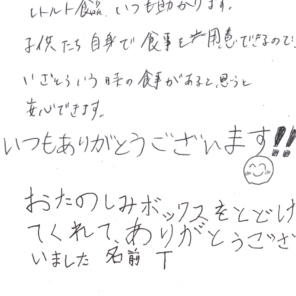 レトルト食品、いつも助かります。
子供たち自身で食事を用意できるので、
いざという時の食事があると思うと
安心できます。
いつもありがとうございます!!
おたのしみボックスをとどけ
てくれて、ありがとうござ
いました 名前 T